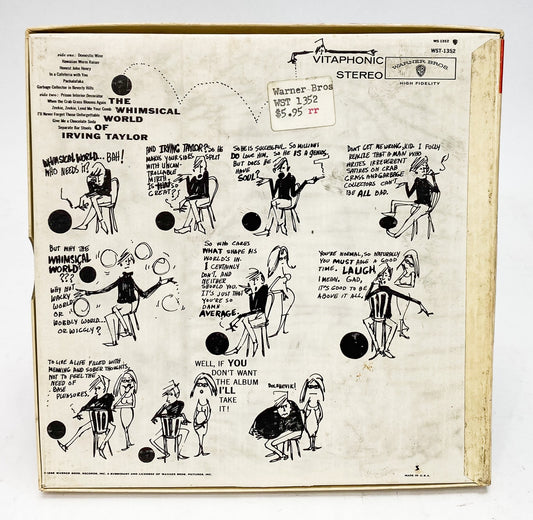 WS 1352
WST-1352
side one: Domestic Wine
Hawaiian Worm Raiser
Honest John Henry
In a Cafeteria with You
Pachalafaka
Garbage Collector in Beverly Hills
side two: Prison Interior Decorator
When the Crab Grass Blooms Again
Zookie, Zookie, Lend Me Your Comb
I'll Never Forget Those Unforgettable
Give Me a Chocolate Soda
Separate Bar Stools
THE
WHIMSICAL
WORLD
OF
IRVING TAYLOR
VITAPHONIC
STEREO
WARNER BROS
HIGH FIDELITY
Warner Bros
WST 1352
$5.95 rr
WHIMSICAL WORLD... BAH!
WHO NEEDS IT?
AND IRVING TAYLOR? SO HE
MAKES YOUR SIDES SPLIT
WITH UNCON-
TROLLABLE
MIRTH.
IS THAT SO
GREAT?
SO HE IS SUCCESSFUL. SO MILLIONS
DO LOVE HIM. SO HE IS A GENIUS.
BUT DOES HE
HAVE
SOUL?
DON'T GET ME WRONG, KID. I FULLY
REALIZE THAT A MAN WHO
WRITES IRREVERENT
SATIRES ON CRAB
GRASS AND GARBAGE
COLLECTORS CAN'T
BE ALL BAD.
BUT WHY THE
WHIMSICAL
WORLD
???
WHY NOT
WACKY
WORLD
OR
WOBBLY WORLD...
OR WIGGLY?
SO WHO CARES
WHAT SHAPE HIS
WORLD'S IN.
I CERTAINLY
DON'T. AND
NEITHER
SHOULD YOU.
IT'S JUST THAT
YOU'RE SO
DAMN
AVERAGE.
YOU'RE NORMAL, SO NATURALLY
YOU MUST HAVE A GOOD
TIME. LAUGH
I MEAN. GAD,
IT'S GOOD TO BE
ABOVE IT ALL.
TO LIVE A LIFE FILLED WITH
MEANING AND SOBER THOUGHTS,
NOT TO FEEL THE
NEED OF
BASE
PLEASURES.
WELL, IF YOU
DON'T WANT
THE ALBUM
I'LL
TAKE
IT!
BOLSHEVIK!
WARNER BROS. RECORDS, INC. A SUBSIDIARY AND LICENSEE OF WARNER BROS. PICTURES, INC.
S
MADE IN U.S.A.